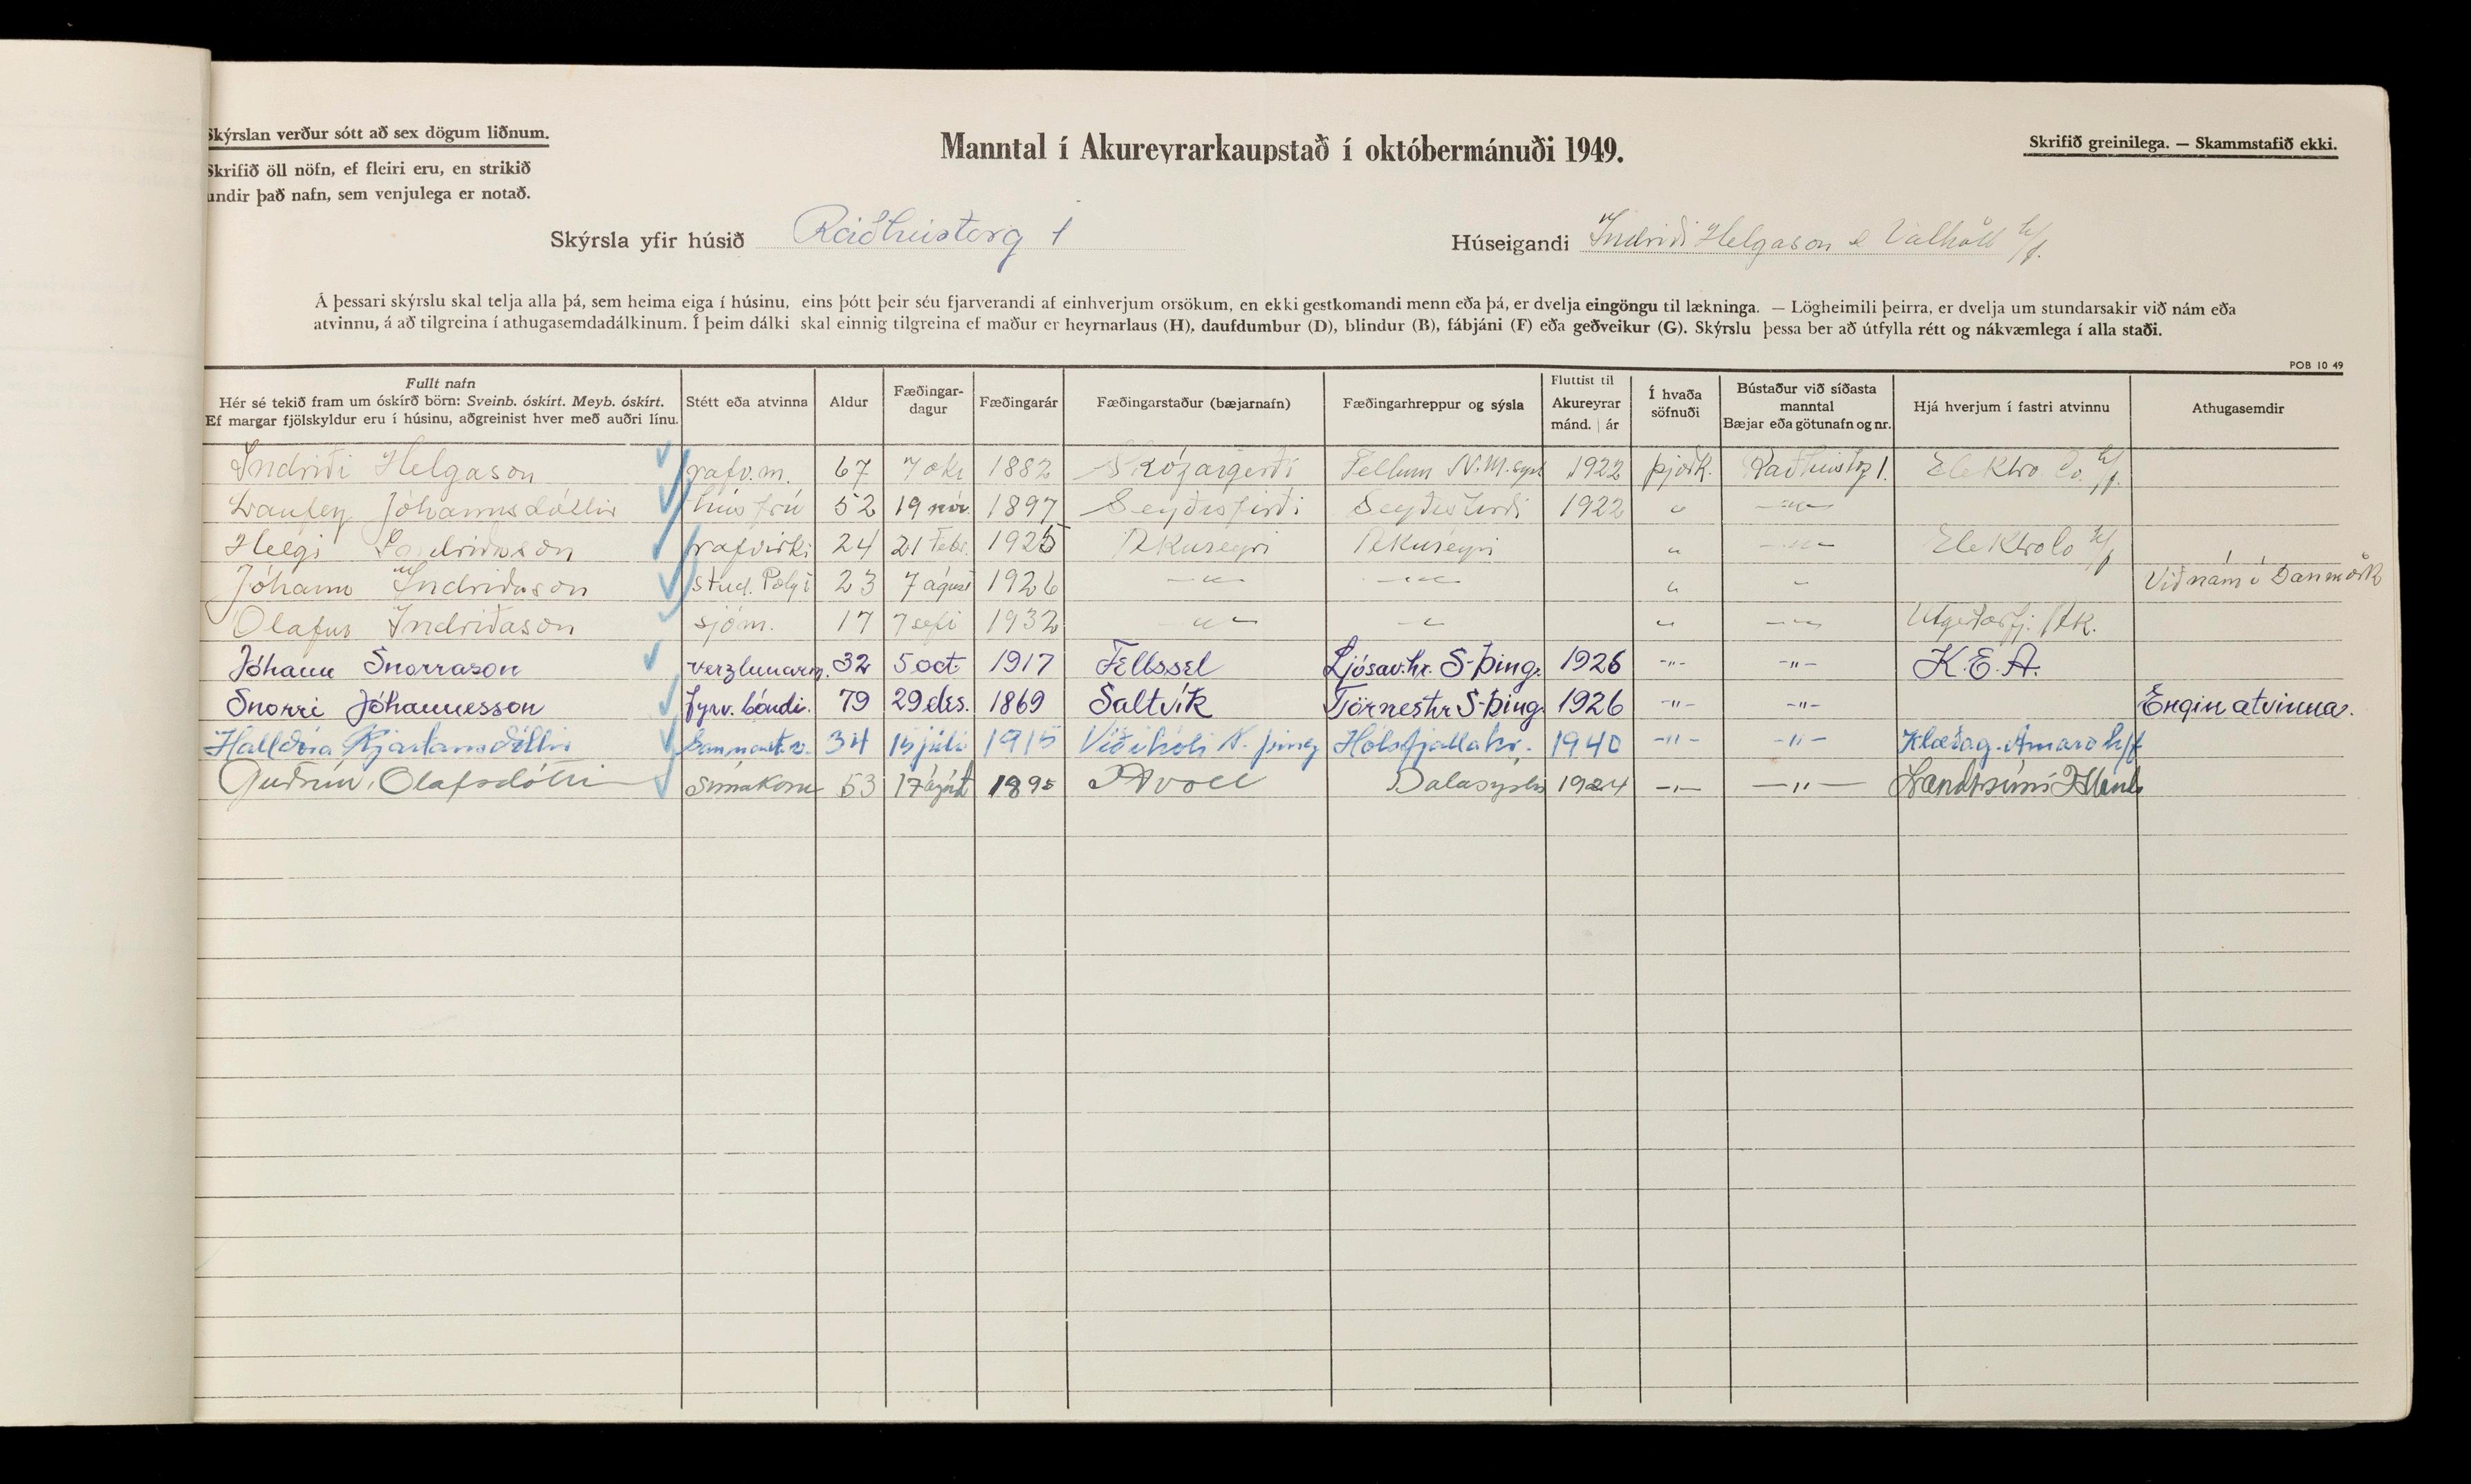 Skýrslan verður sótt að sex dögum liðnum.
Skrifið öll nöfn, ef fleiri eru, en strikið
undir það nafn, sem venjulega er notað.
Manntal í Akureyrarkaupstað í októbermánuði 1949.
Skrifið greinilega. — Skammstafið ekki.
Skýrsla yfir húsið Ráðhústorg 1
Húseigandi Indriði Helgason & Valhöll h/f.
Á þessari skýrslu skal telja alla þá, sem heima eiga í húsinu, eins þótt þeir séu fjarverandi af einhverjum orsökum, en ekki gestkomandi menn eða þá, er dvelja eingöngu til lækninga. — Lögheimili þeirra, er dvelja um stundarsakir við nám eða
atvinnu, á að tilgreina í athugasemdadálkinum. Í þeim dálki skal einnig tilgreina ef maður er heyrnarlaus (H), daufdumbur (D), blindur (B), fábjáni (F) eða geðveikur (G). Skýrslu þessa ber að útfylla rétt og nákvæmlega í alla staði.
POB 10 49
Fullt nafn
Hér sé tekið fram um óskírð börn: Sveinb. óskírt. Meyb. óskírt.
Ef margar fjölskyldur eru í húsinu, aðgreinist hver með auðri línu.
Stétt eða atvinna
Aldur
Fæðingar-
dagur
Fæðingarár
Fæðingarstaður (bæjarnafn)
Fæðingarhreppur og sýsla
Fluttist til
Akureyrar
mánd. | ár
Í hvaða
söfnuði
Bústaður við síðasta
manntal
Bæjar eða götunafn og nr.
Hjá hverjum í fastri atvinnu
Athugasemdir
Indriði Helgason rafv.m. 67 7 okt 1882 Skógargerði Fellum N.M.sýsl 1922 þjóðk. Ráðhústog 1. Elektro Co. h/f.
Laufey Jóhannsdóttir húsfrú 52 19 nóv. 1897 Seyðisfirði Seyðisfirði 1922 " —"—
Helgi Indriðason rafvirki 24 21 febr. 1925 Akureyri Akureyri " —"— Elektro Co h/f
Jóhann Indriðason stud. Polyt 23 7 ágúst 1926 —"— —"— " " Við nám í Danmörk
Ólafur Indriðason sjóm. 17 7 sept 1932 —"— —"— " —"— Útgerðarfj. Ak.
Jóhann Snorrason verzlunarm. 32 5 oct 1917 Fellssel Ljósav.hr. S-Þing. 1926 -"- -"- K.E.A.
Snorri Jóhannesson fyrv. bóndi. 79 29 des. 1869 Saltvík Tjörneshr S-Þing. 1926 -"- -"- Engin atvinna.
Halldóra Kjartansdóttir 34 15 júlí 1915 Víðihóli N. þing Hólsfjallahr. 1940 -"- -"- Klæðag. Amaro h/f
Guðrún Ólafsdóttir símakona 53 17 ágúst 1895 Dalasýslu 1924 -"- —"—